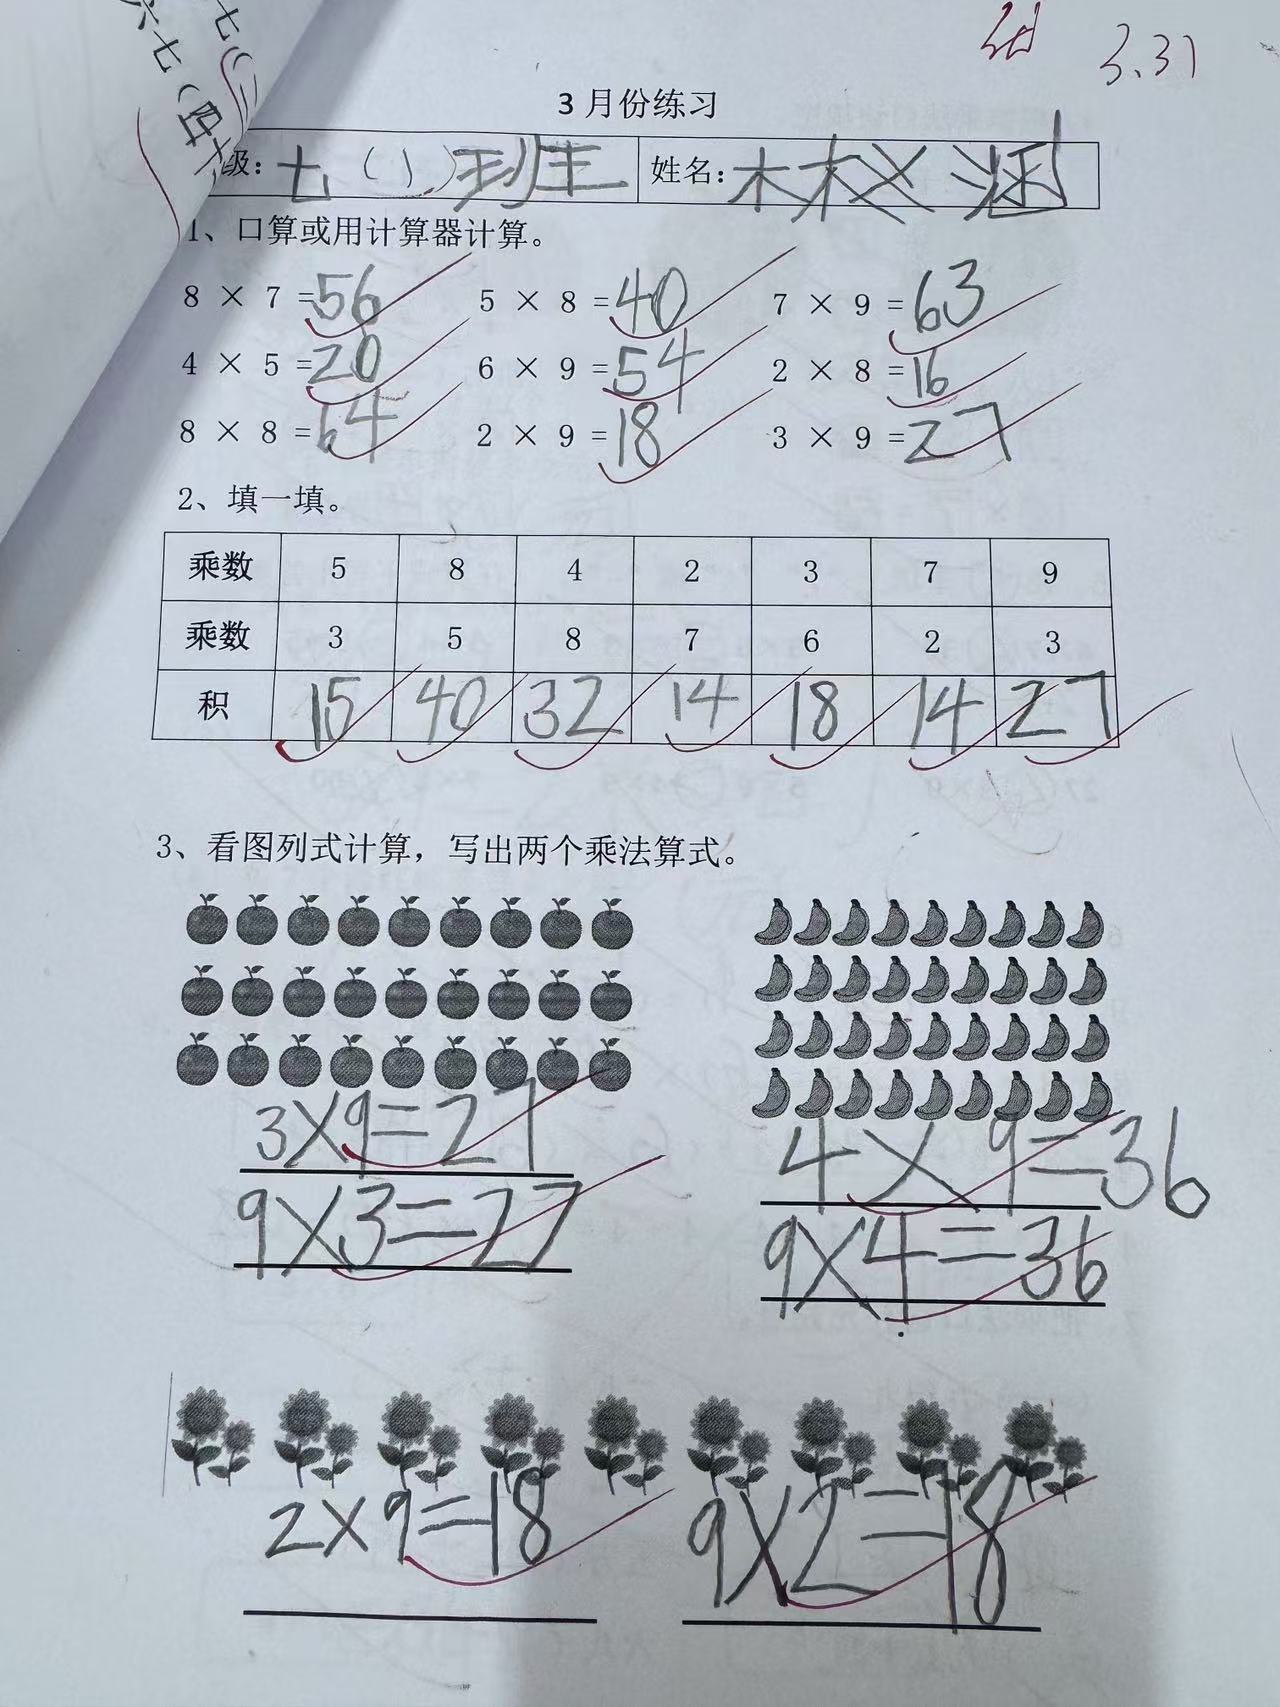 七(二
六七(四
3.31
3月份练习
级: 七(1)班 姓名: 林权涵
1、口算或用计算器计算。
8 × 7 =56 5 × 8 =40 7 × 9 =63
4 × 5 =20 6 × 9 =54 2 × 8 =16
8 × 8 =64 2 × 9 =18 3 × 9 =27
2、填一填。
乘数 5 8 4 2 3 7 9
乘数 3 5 8 7 6 2 3
积 15 40 32 14 18 14 27
3、看图列式计算，写出两个乘法算式。
3×9=27 4×9=36
9×3=27 9×4=36
2×9=18 9×2=18